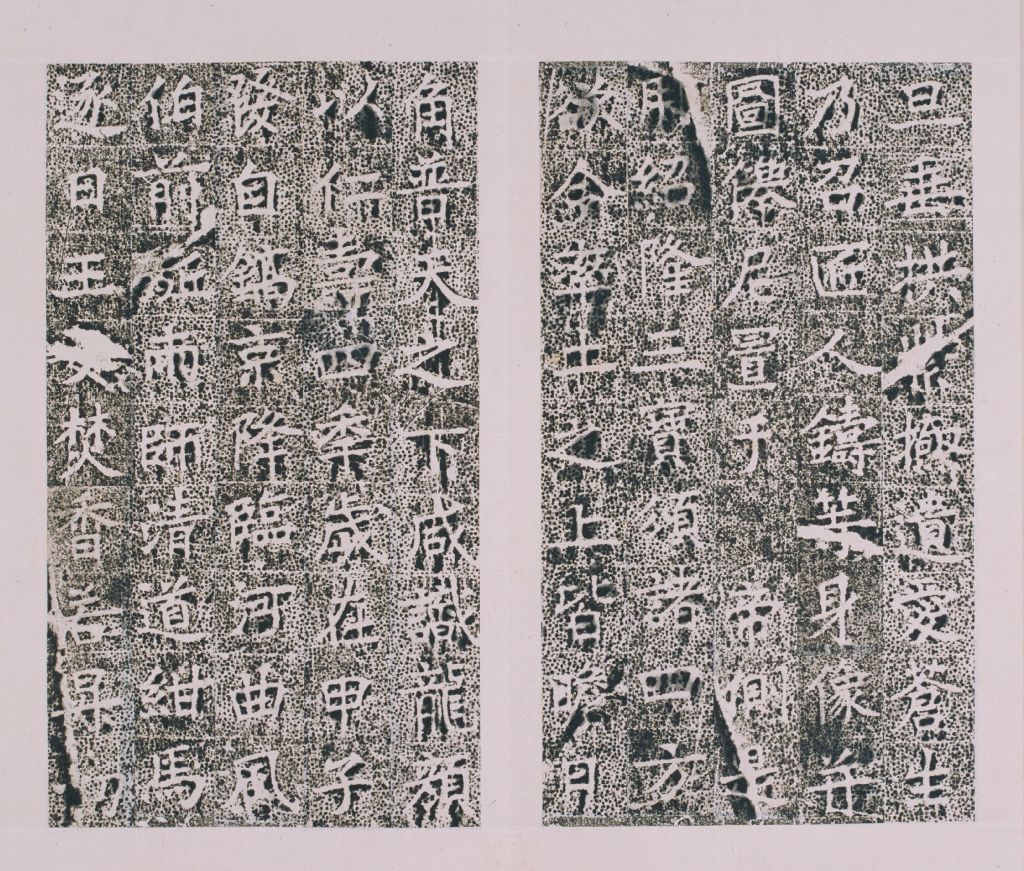 旦垂拱紫極遺愛蒼生
乃召匠人鑄等身像并
圖僊尼置乎帝側是
用紹隆三寶頒諸四方
欲令率土之上皆瞻日
角普天之下咸識龍顏
以仁壽四年歲在甲子
發自鎬京降臨河曲風
伯前駈雨師清道紺馬
逐日玉女焚香若昇忉